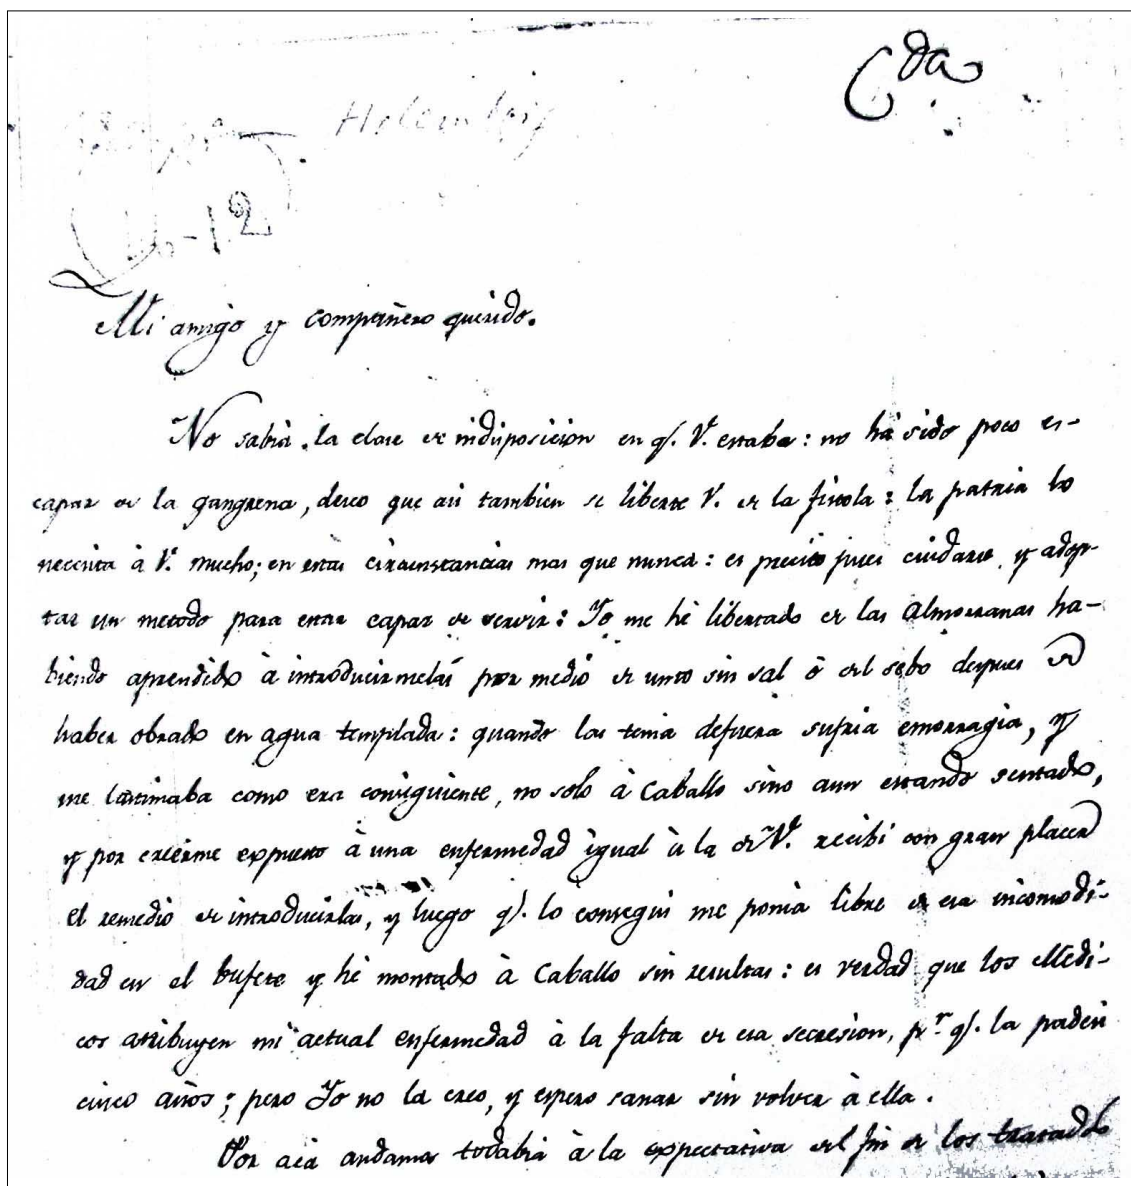 Cda
Holemberg
12
Mi amigo y compañero querido.
No sabia la clase de indisposicion en q.e V. estaba: no há sido poco es-
capar de la gangrena, deseo que asi tambien se liberte V. de la fistola: la patria lo
necesita à V. mucho; en estas circunstancias mas que nunca: es preciso pues cuidarse, y adop-
tar un metodo para estar capaz de servir: Yo me hè libertado de las Almorranas ha-
biendo aprendido à introducirmelas por medio de unto sin sal ò del sebo despues de
haber obrado en agua templada: quando las tenia defuera sufria emorragia, y
me lastimaba como era consiguiente, no solo à Caballo sino aun estando sentado,
y por creerme expuesto à una enfermedad igual à la de V. recibi con gran placer
el remedio de introducirlas, y luego q.e lo consegui me ponia libre de esa incomodi-
dad en el bufete y hè montado à Caballo sin resultas: es verdad que los Medi-
cos atribuyen mi actual enfermedad à la falta de esa secresion, p.r q.e la padeci
cinco años; pero Yo no la creo, y espero sanar sin volver à ella.
Por acà andamos todabia à la expectativa del fin de los tratados